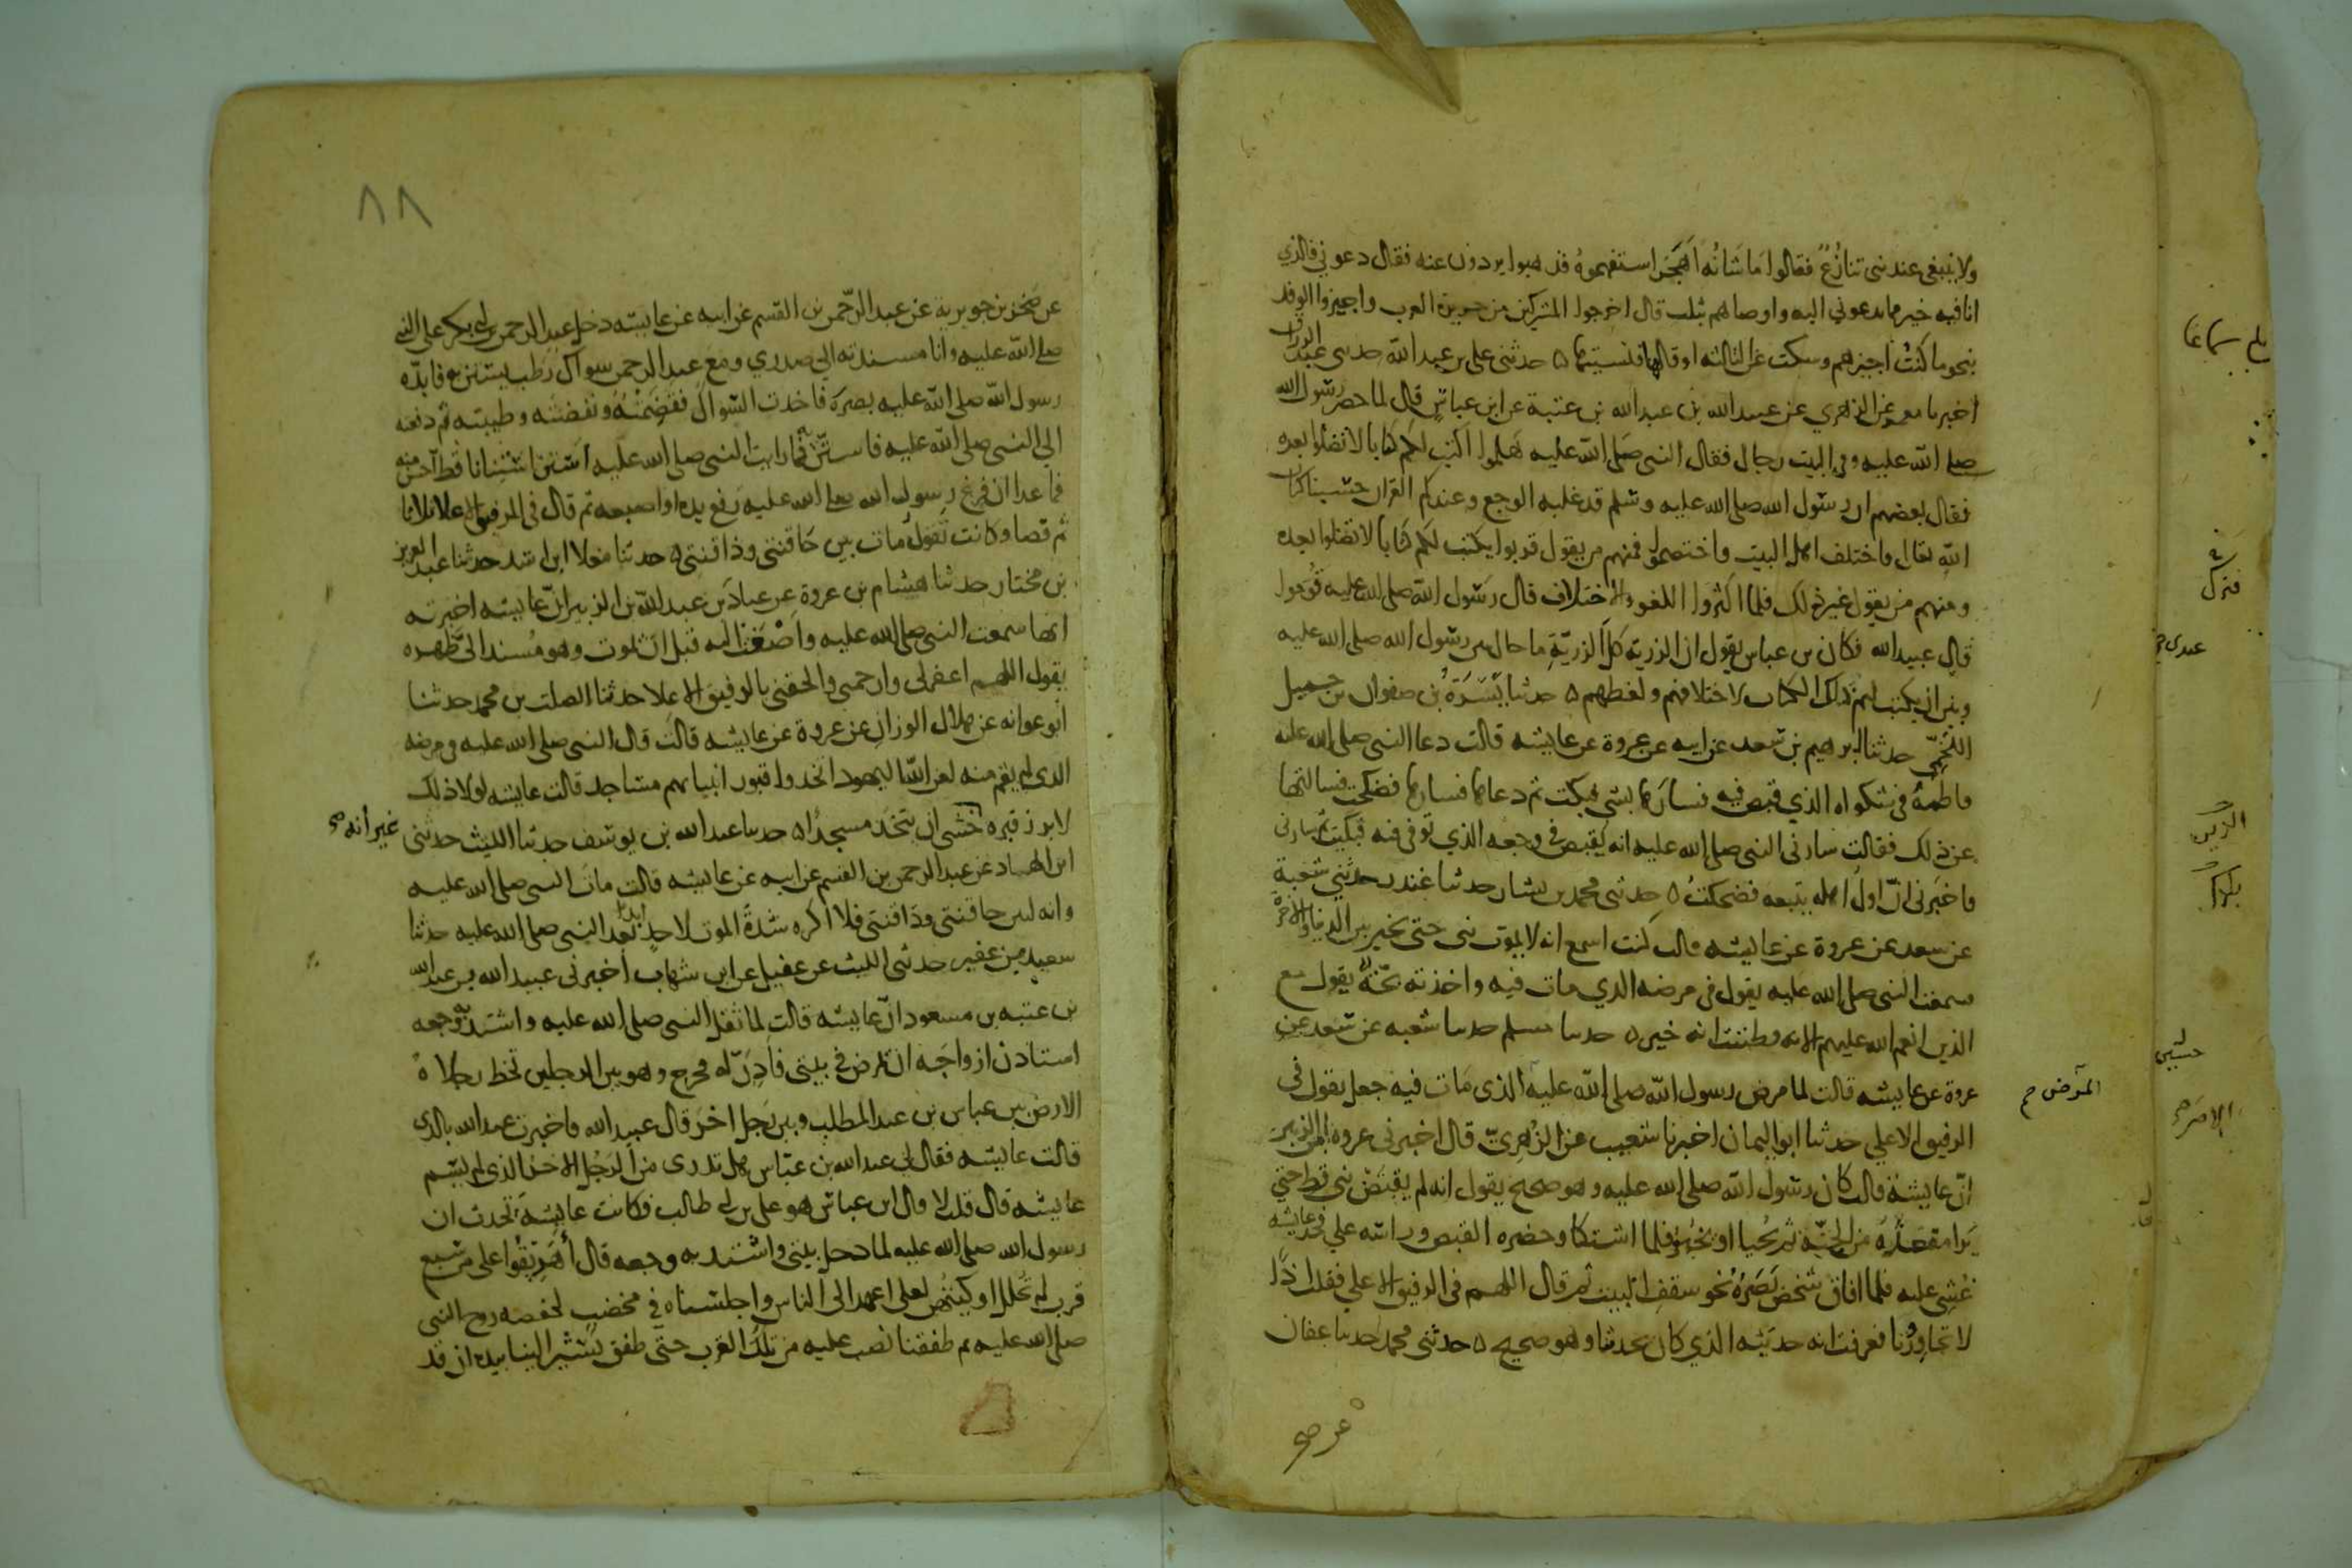 ولا ينبغي عند نبي تنازع فقالوا ما شانه اهجر استفهموه فذهبوا يردون عنه فقال دعوني فالذي
انا فيه خير مما يدعوني اليه واوصاهم بثلث قال اخرجوا المشركين من جزيرة العرب واجيزوا الوفد
بنحو ما كنت اجيزهم وسكت عن الثالثة او قالها فنسيتها ه حدثني علي بن عبد الله حدثني عبد الرزاق
اخبرنا معمر عن الزهري عن عبيد الله بن عبد الله بن عتبة عن ابن عباس قال لما حضر رسول الله
صلى الله عليه وفي البيت رجال فقال النبي صلى الله عليه هلموا اكتب لكم كتابا لا تضلوا بعده
فقال بعضهم ان رسول الله صلى الله عليه وسلم قد غلبه الوجع وعندكم القران حسبنا كتاب
الله تعالى فاختلف اهل البيت واختصموا فمنهم من يقول قربوا يكتب لكم كتابا لا تضلوا بعده
ومنهم من يقول غير ذلك فلما اكثروا اللغو والاختلاف قال رسول الله صلى الله عليه قوموا
قال عبيد الله فكان بن عباس يقول ان الرزية كل الرزية ما حال بين رسول الله صلى الله عليه
وبين ان يكتب لهم ذلك الكتاب لاختلافهم ولغطهم ه حدثنا يسرة بن صفوان بن جميل
اللخمي حدثنا ابرهيم بن سعد عن ابيه عن عروة عن عايشه قالت دعا النبي صلى الله عليه
فاطمة في شكواه الذي قبض فيه فسارها بشي فبكت ثم دعاها فسارها فضحكت فسالتها
عن ذلك فقالت سارني النبي صلى الله عليه انه يقبض في وجعه الذي توفي فيه فبكيت ثم سارني
فاخبرني اني اول اهله يتبعه فضحكت ه حدثني محمد بن بشار حدثنا غندر حدثني شعبة
عن سعد عن عروة عن عايشه قالت كنت اسمع انه لا يموت نبي حتى يخير بين الدنيا والاخرة
سمعت النبي صلى الله عليه يقول في مرضه الذي مات فيه واخذته بحة يقول مع
الذين انعم الله عليهم الاية فظننت انه خير ه حدثنا مسلم حدثنا شعبه عن سعد عن
عروة عن عايشه قالت لما مرض رسول الله صلى الله عليه الذي مات فيه جعل يقول في
المرض
الرفيق الاعلي حدثنا ابو اليمان اخبرنا شعيب عن الزهري قال اخبرني عروة بن الزبير
ان عايشة قالت كان رسول الله صلى الله عليه وهو صحيح يقول انه لم يقبض نبي قط حتي
يرا مقعده من الجنة ثم يحيا او يخير فلما اشتكا وحضره القبض وراسه علي فخذ عايشه
غشي عليه فلما افاق شخص بصره نحو سقف البيت ثم قال اللهم في الرفيق الاعلي فقلت اذا
لا تجاورنا فعرفت انه حديثه الذي كان يحدثنا وهو صحيح ه حدثني محمد حدثنا عفان
عن صخر
٨٨
عن صخر بن جويرية عن عبد الرحمن بن القسم عن ابيه عن عايشه دخل عبد الرحمن بن ابي بكر على النبي
صلى الله عليه وانا مسندته الي صدري ومع عبد الرحمن سواك رطب يستن به فابده
رسول الله صلى الله عليه بصره فاخذت السواك فقضمته ونفضته وطيبته ثم دفعته
الي النبي صلى الله عليه فاستن به فما رايت النبي صلى الله عليه استن استنانا قط احسن منه
فما عدا ان فرغ رسول الله صلى الله عليه رفع يده او اصبعه ثم قال في الرفيق الاعلا ثلاثا
ثم قضا وكانت تقول مات بين حاقنتي وذاقنتي ه حدثنا معلا ابن اسد حدثنا عبد العزيز
بن مختار حدثنا هشام بن عروة عن عباد بن عبد الله بن الزبير ان عايشه اخبرته
انها سمعت النبي صلى الله عليه واصغت اليه قبل ان يموت وهو مسند الي ظهره
يقول اللهم اغفر لي وارحمني والحقني بالرفيق الاعلا حدثنا الصلت بن محمد حدثنا
ابو عوانه عن هلال الوزان عن عروة عن عايشه قالت قال النبي صلى الله عليه في مرضه
الذي لم يقم منه لعن الله اليهود اتخذوا قبور انبيائهم مساجد قالت عايشه لولا ذلك
لابرز قبره خشي ان يتخذ مسجدا ه حدثنا عبد الله بن يوسف حدثنا الليث حدثني
غير أنه صح
ابن الهاد عن عبد الرحمن بن القسم عن ابيه عن عايشه قالت مات النبي صلى الله عليه
وانه لبين حاقنتي وذاقنتي فلا اكره شدة الموت لاحد ابدا بعد النبي صلى الله عليه حدثنا
سعيد بن عفير حدثني الليث عن عقيل عن ابن شهاب اخبرني عبيد الله بن عبد الله
بن عتبه بن مسعود ان عايشه قالت لما ثقل النبي صلى الله عليه واشتد به وجعه
استاذن ازواجه ان يمرض في بيتي فاذن له فخرج وهو بين الرجلين تخط رجلاه
الارض بين عباس بن عبد المطلب وبين رجل اخر قال عبيد الله فاخبرت عبد الله بالذي
قالت عايشه فقال لي عبد الله بن عباس هل تدري من الرجل الاخر الذي لم تسم
عايشه قال قلت لا قال ابن عباس هو علي بن ابي طالب فكانت عايشة تحدث ان
رسول الله صلى الله عليه لما دخل بيتي واشتد به وجعه قال أهريقوا على من سبع
قرب لم تحلل اوكيتهن لعلي اعهد الى الناس واجلسناه في مخضب لحفصه زوج النبي
صلى الله عليه ثم طفقنا نصب عليه من تلك القرب حتى طفق يشير الينا بيده ان قد